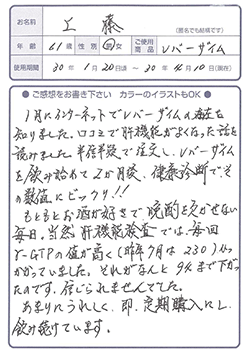 お名前 工藤
(匿名でも結構です)
年齢 61才 性別 男・女 ご使用商品 レバーザイム
使用期間 30年1月20日頃 ~ 30年4月10日(現在)
● ご感想をお書き下さい カラーのイラストもOK ●
1月にインターネットでレバーザイムの存在を
知りました。口コミで肝機能がよくなった話を
読みました。半信半疑で注文し、レバーザイム
を飲み始めて2か月後、健康診断でそ
の数値にビックリ!!
もともとお酒が好きで、晩酌を欠かせない
毎日。当然肝機能検査では、毎回
γ-GTPの値が高く(昨年9月は230)ひっ
かかっていました。それがなんと94まで下がっ
たのです。信じられませんでした。
あまりにうれしく、即、定期購入にし、
飲み続けています。